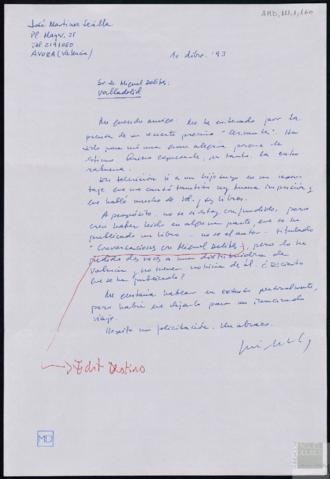 José Martínez Sevilla
Pl. Mayor, 25
Tel. 2191060
AYORA (Valencia)
AMD, 111, 1, 160
10 dicbre. '93
Sr. D. Miguel Delibes.
Valladolid
Mi querido amigo: Me he enterado por la
prensa de su reciente premio "Cervantes". Ha
sido para mí una gran alegría porque le
estimo. Quiero expresarle, por tanto, la enhorabuena.
En televisión vi a su hijo
que me causó también muy buena impresión y
habló mucho de Vd. y sus libros.
A propósito, no sé si estoy confundido, pero
creo haber leído en alguna parte que se ha
publicado un libro - no sé el autor - titulado
"Conversaciones con Miguel Delibes", pero lo he
pedido dos veces a una distribuidora de
Valencia y no tienen noticia de él. ¿Es cierto
que se ha publicado?
Me gustaría hablar con usted personalmente,
pero habré de dejarlo para un
viaje.
Repito mi felicitación. Un abrazo.
Edit Destino
MD